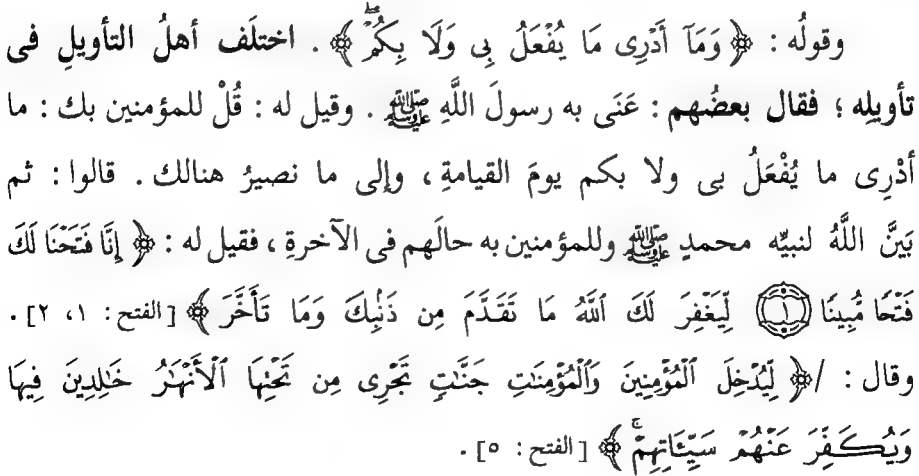 وقولُه : ﴿ وَمَآ أَدْرِى مَا يُفْعَلُ بِى وَلَا بِكُمْۖ ﴾ . اختلَف أهلُ التأويلِ فى
تأويلِه ؛ فقال بعضُهم : عَنَى به رسولَ اللَّهِ ﷺ . وقيل له : قُلْ للمؤمنين بك : ما
أدْرِى ما يُفْعَلُ بى ولا بكم يومَ القيامةِ ، وإلى ما نصيرُ هنالك . قالوا : ثم
بَيَّنَ اللَّهُ لنبيِّه محمدٍ ﷺ وللمؤمنين به حالَهم فى الآخرةِ ، فقيل له : ﴿ إِنَّا فَتَحْنَا لَكَ
فَتْحًا مُّبِينًا ۝١ لِّيَغْفِرَ لَكَ ٱللَّهُ مَا تَقَدَّمَ مِن ذَنۢبِكَ وَمَا تَأَخَّرَ ﴾ [الفتح : ١، ٢] .
وقال : /﴿ لِّيُدْخِلَ ٱلْمُؤْمِنِينَ وَٱلْمُؤْمِنَٰتِ جَنَّٰتٍ تَجْرِى مِن تَحْتِهَا ٱلْأَنْهَٰرُ خَٰلِدِينَ فِيهَا
وَيُكَفِّرَ عَنْهُمْ سَيِّـَٔاتِهِمْۚ ﴾ [الفتح : ٥] .